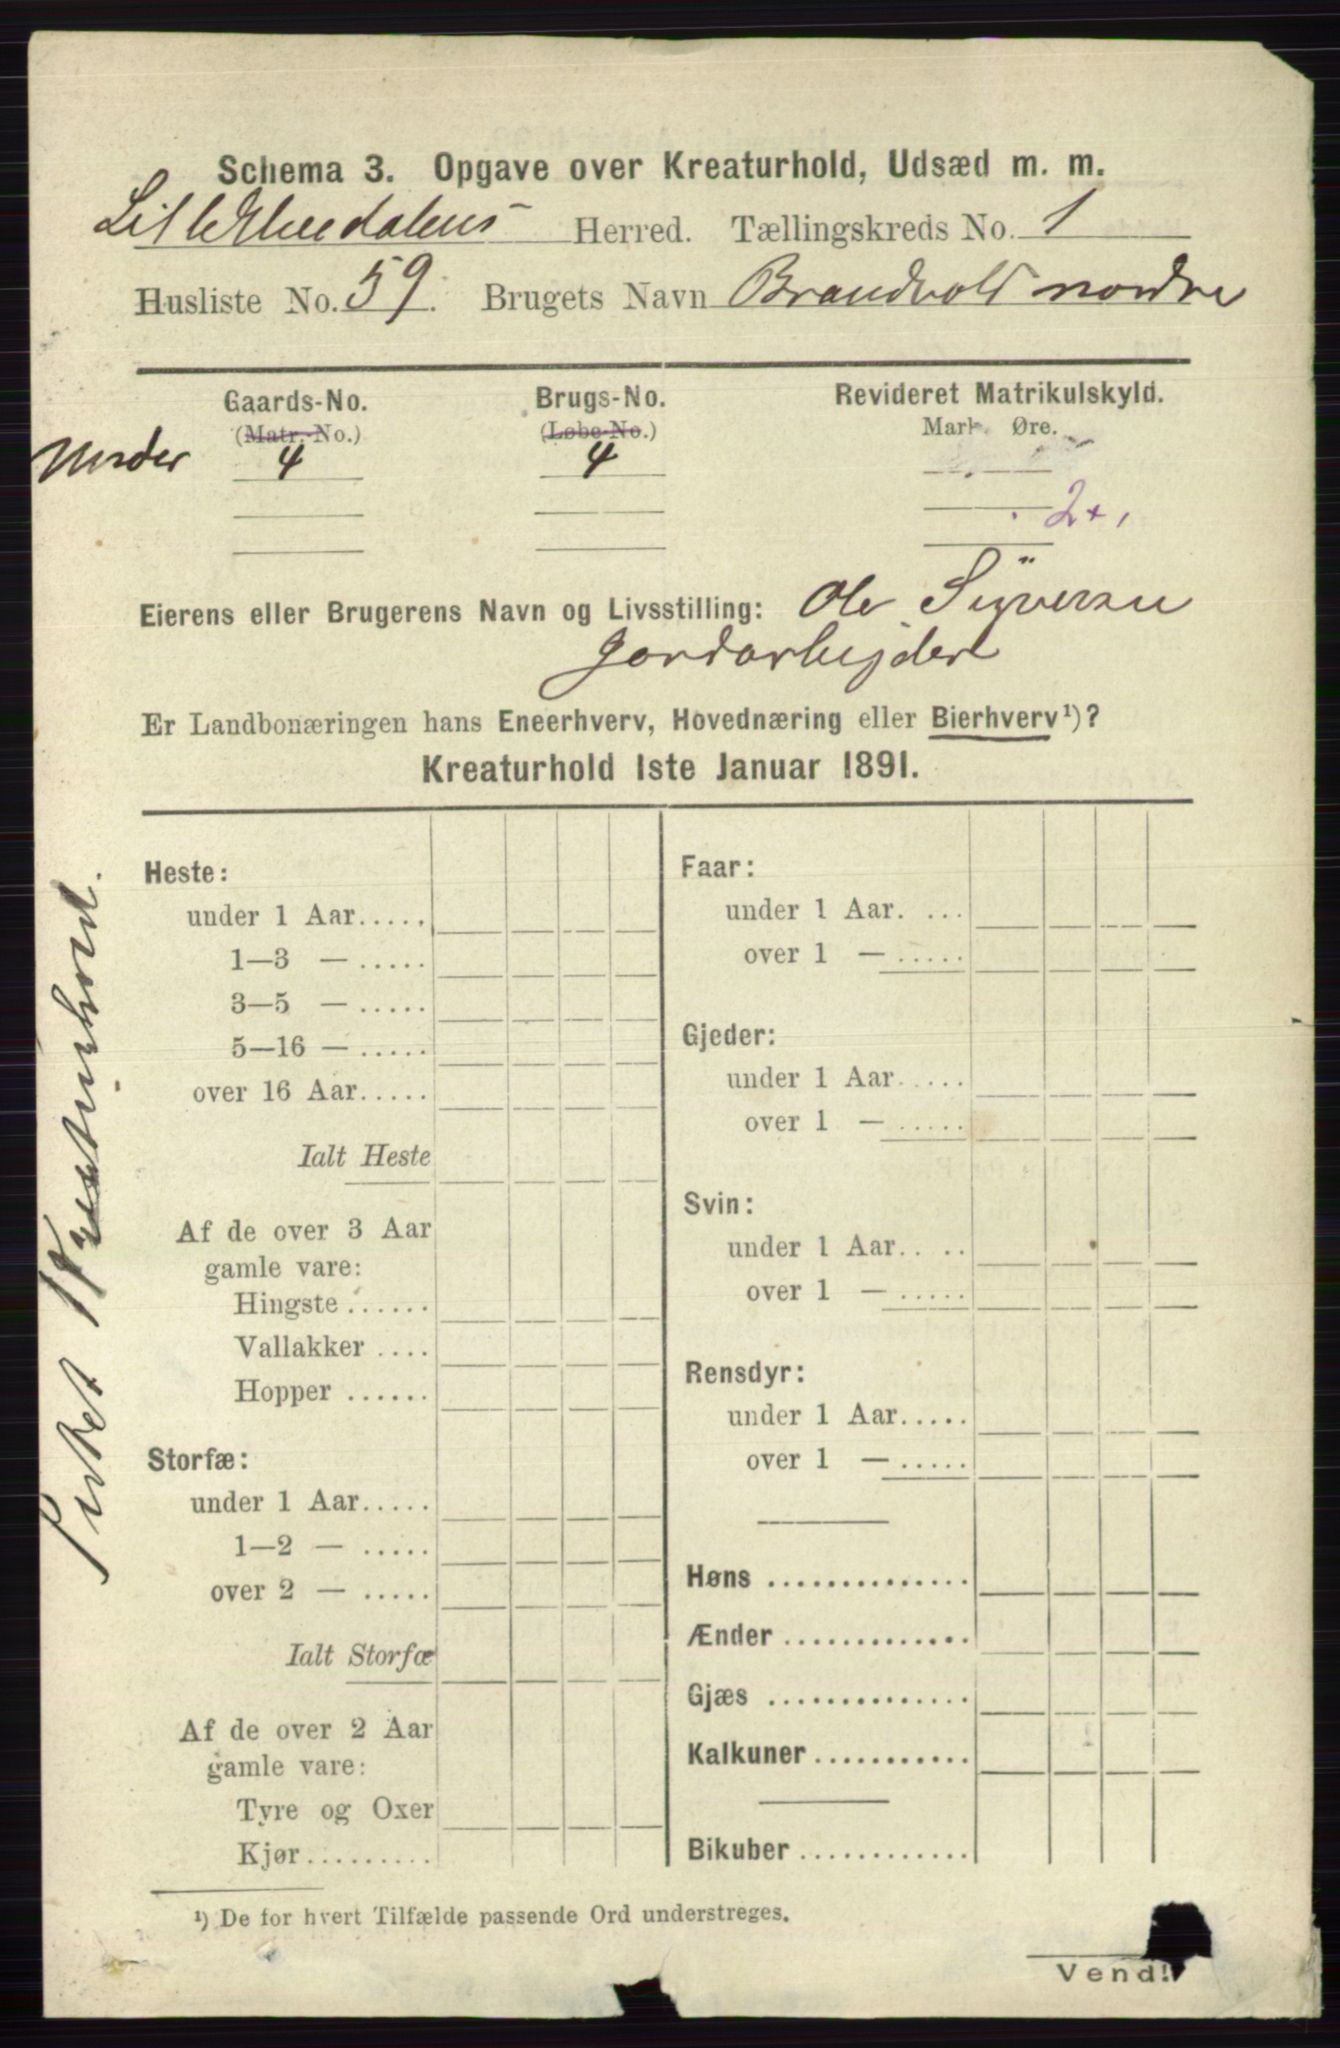 Schema 3. Opgave over Kreaturhold, Udsæd m. m.
Lille Elvedalens Herred. Tællingskreds No. 1
Husliste No. 59. Brugets Navn Brandvold nordre
Gaards-No. Brugs-No. Revideret Matrikulskyld.
(Matr.-No.) (Løbe-No.) Mark. Øre.
Under 4 4
2
Eierens eller Brugerens Navn og Livsstilling: Ole Syversen
Jordarbejder
Er Landbonæringen hans Eneerhverv, Hovednæring eller Bierhverv¹)?
Kreaturhold 1ste Januar 1891.
Heste:
under 1 Aar.....
1—3 — .....
3—5 — .....
5—16 — .....
over 16 Aar.....
Ialt Heste
Af de over 3 Aar
gamle vare:
Hingste ......
Vallakker ....
Hopper ......
Storfæ:
under 1 Aar.....
1—2 — .....
over 2 — .....
Ialt Storfæ
Af de over 2 Aar
gamle vare:
Tyre og Oxer
Kjør.........
Faar:
under 1 Aar. ...
over 1 — .....
Gjeder:
under 1 Aar.....
over 1 — .....
Svin:
under 1 Aar.. ..
over 1 — .....
Rensdyr:
under 1 Aar.....
over 1 — .....
Høns ..............
Ænder .............
Gjæs ..............
Kalkuner...........
Bikuber ............
Intet Kreaturhold.
¹) De for hvert Tilfælde passende Ord understreges.
Vend!